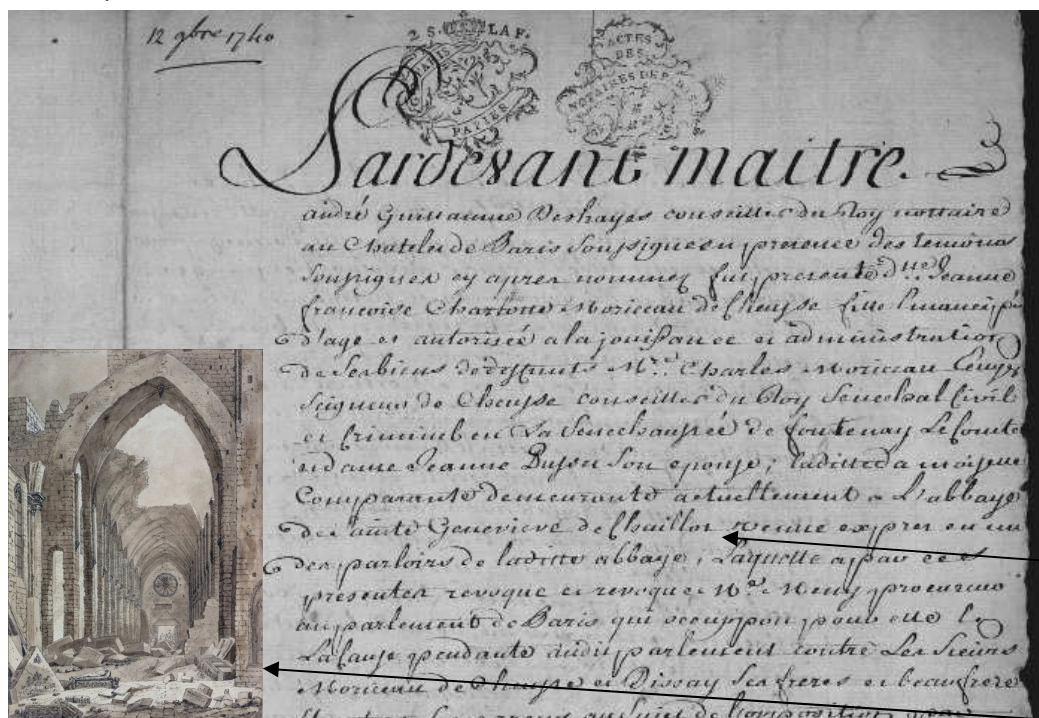 12 9bre 1740
2 S. LA F.
PARIS
PAPIER
ACTES
DES
NOTAIRES DE PARIS
Pardevant maitre
andré Guillaume Deshayes conseiller du Roy nottaire
au Chatelet de Paris soussigné en presence des temoins
soussignez cy apres nommez fut presente d.lle Jeanne
françoise Charlotte Moriceau de Cheusse fille Emancipée
d'age et autorisée a la jouissance et administration
de ses biens de deffunts Mre Charles Moriceau
Seigneur de Cheusse conseiller du Roy Senechal Civil
et Criminel en La Senechaussée de fontenay Le Comte
et dame Jeanne son epouse; laditte damoiselle
Comparante demeurante actuellement a L'abbaye
de sainte Genevieve de Chaillot venue exprès en un
des parloirs de laditte abbaye; Laquelle a par ces
presentes revoqué et revoque Me procureur
au parlement de Paris qui occuppoit pour elle
La Cause pendante audit parlement contre Les Sieurs
Moriceau de Cheusse et Dissay ses freres et beaufrere